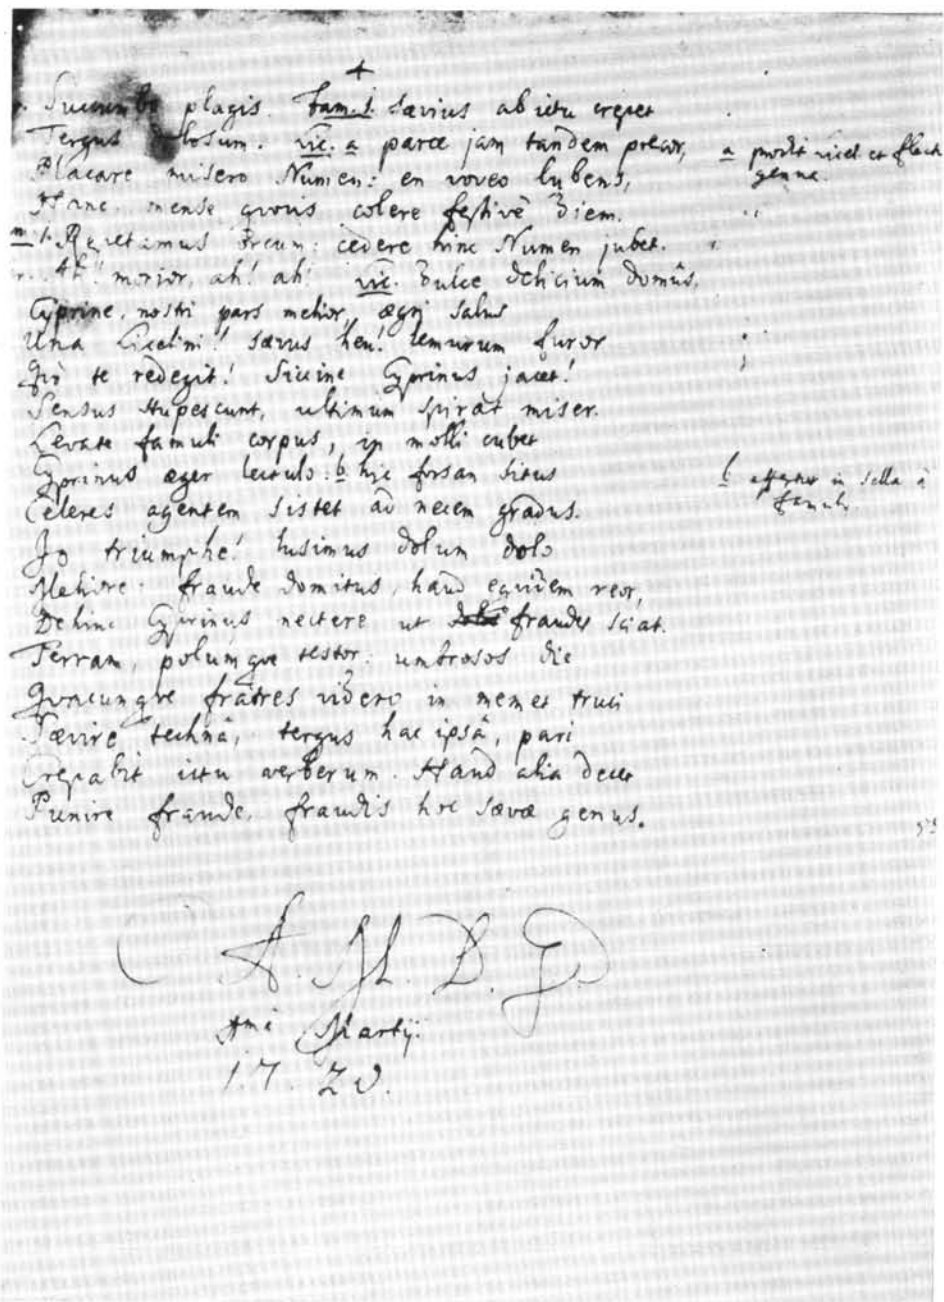 4
Succumbo plagis. fam. 1. Sævius ab ictu crepet
Tergus dolosum. vic. a parce jam tandem precor, a prodit vicel. et flect
Placare misero Numen: en voveo lubens, genua.
Hanc mense quovis colere festivè diem.
m 1. Repetamus Orcum: cedere hinc Numen jubet.
r. Ah! morior, ah! ah! vic. Dulce delicium domûs,
Cyprine, nostri pars melior, ægri salus
Una Vicelini! sævus heu! lemurum furor
Quò te redegit! Siccine Cyprinus jacet!
Sensus stupescunt, ultimum spirat miser.
Levate famuli corpus, in molli cubet
Cyprinus æger lectulo: b hic forsan situs b affertur in sella a
Celeres agentem sistet ad necem gradus. famulis
Io triumphe! lusimus dolum dolo
Meliore: fraude domitus, haud equidem reor,
Dehinc Cyprinus nectere ut fraudes sciat.
Terram, polumque testor: umbrosos die
Quocunque fratres videro in memet truci
Sævire technâ, tergus hac ipsâ, pari
Crepabit ictu verberum. Haud alia decet
Punire fraude, fraudis hoc sævæ genus.
A. M. D. G
Martij.
17 20.